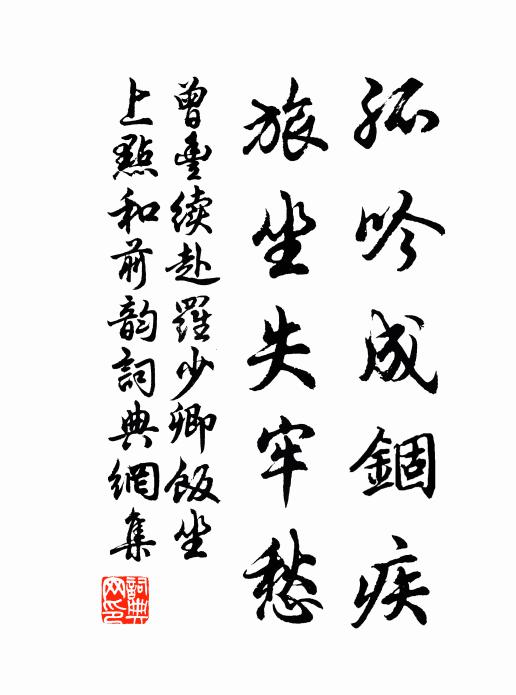 孤吟成錮疾
旅坐失牢愁
曾豊续赴羅少卿飯坐
上點和前韵詞典網集
詞典网印